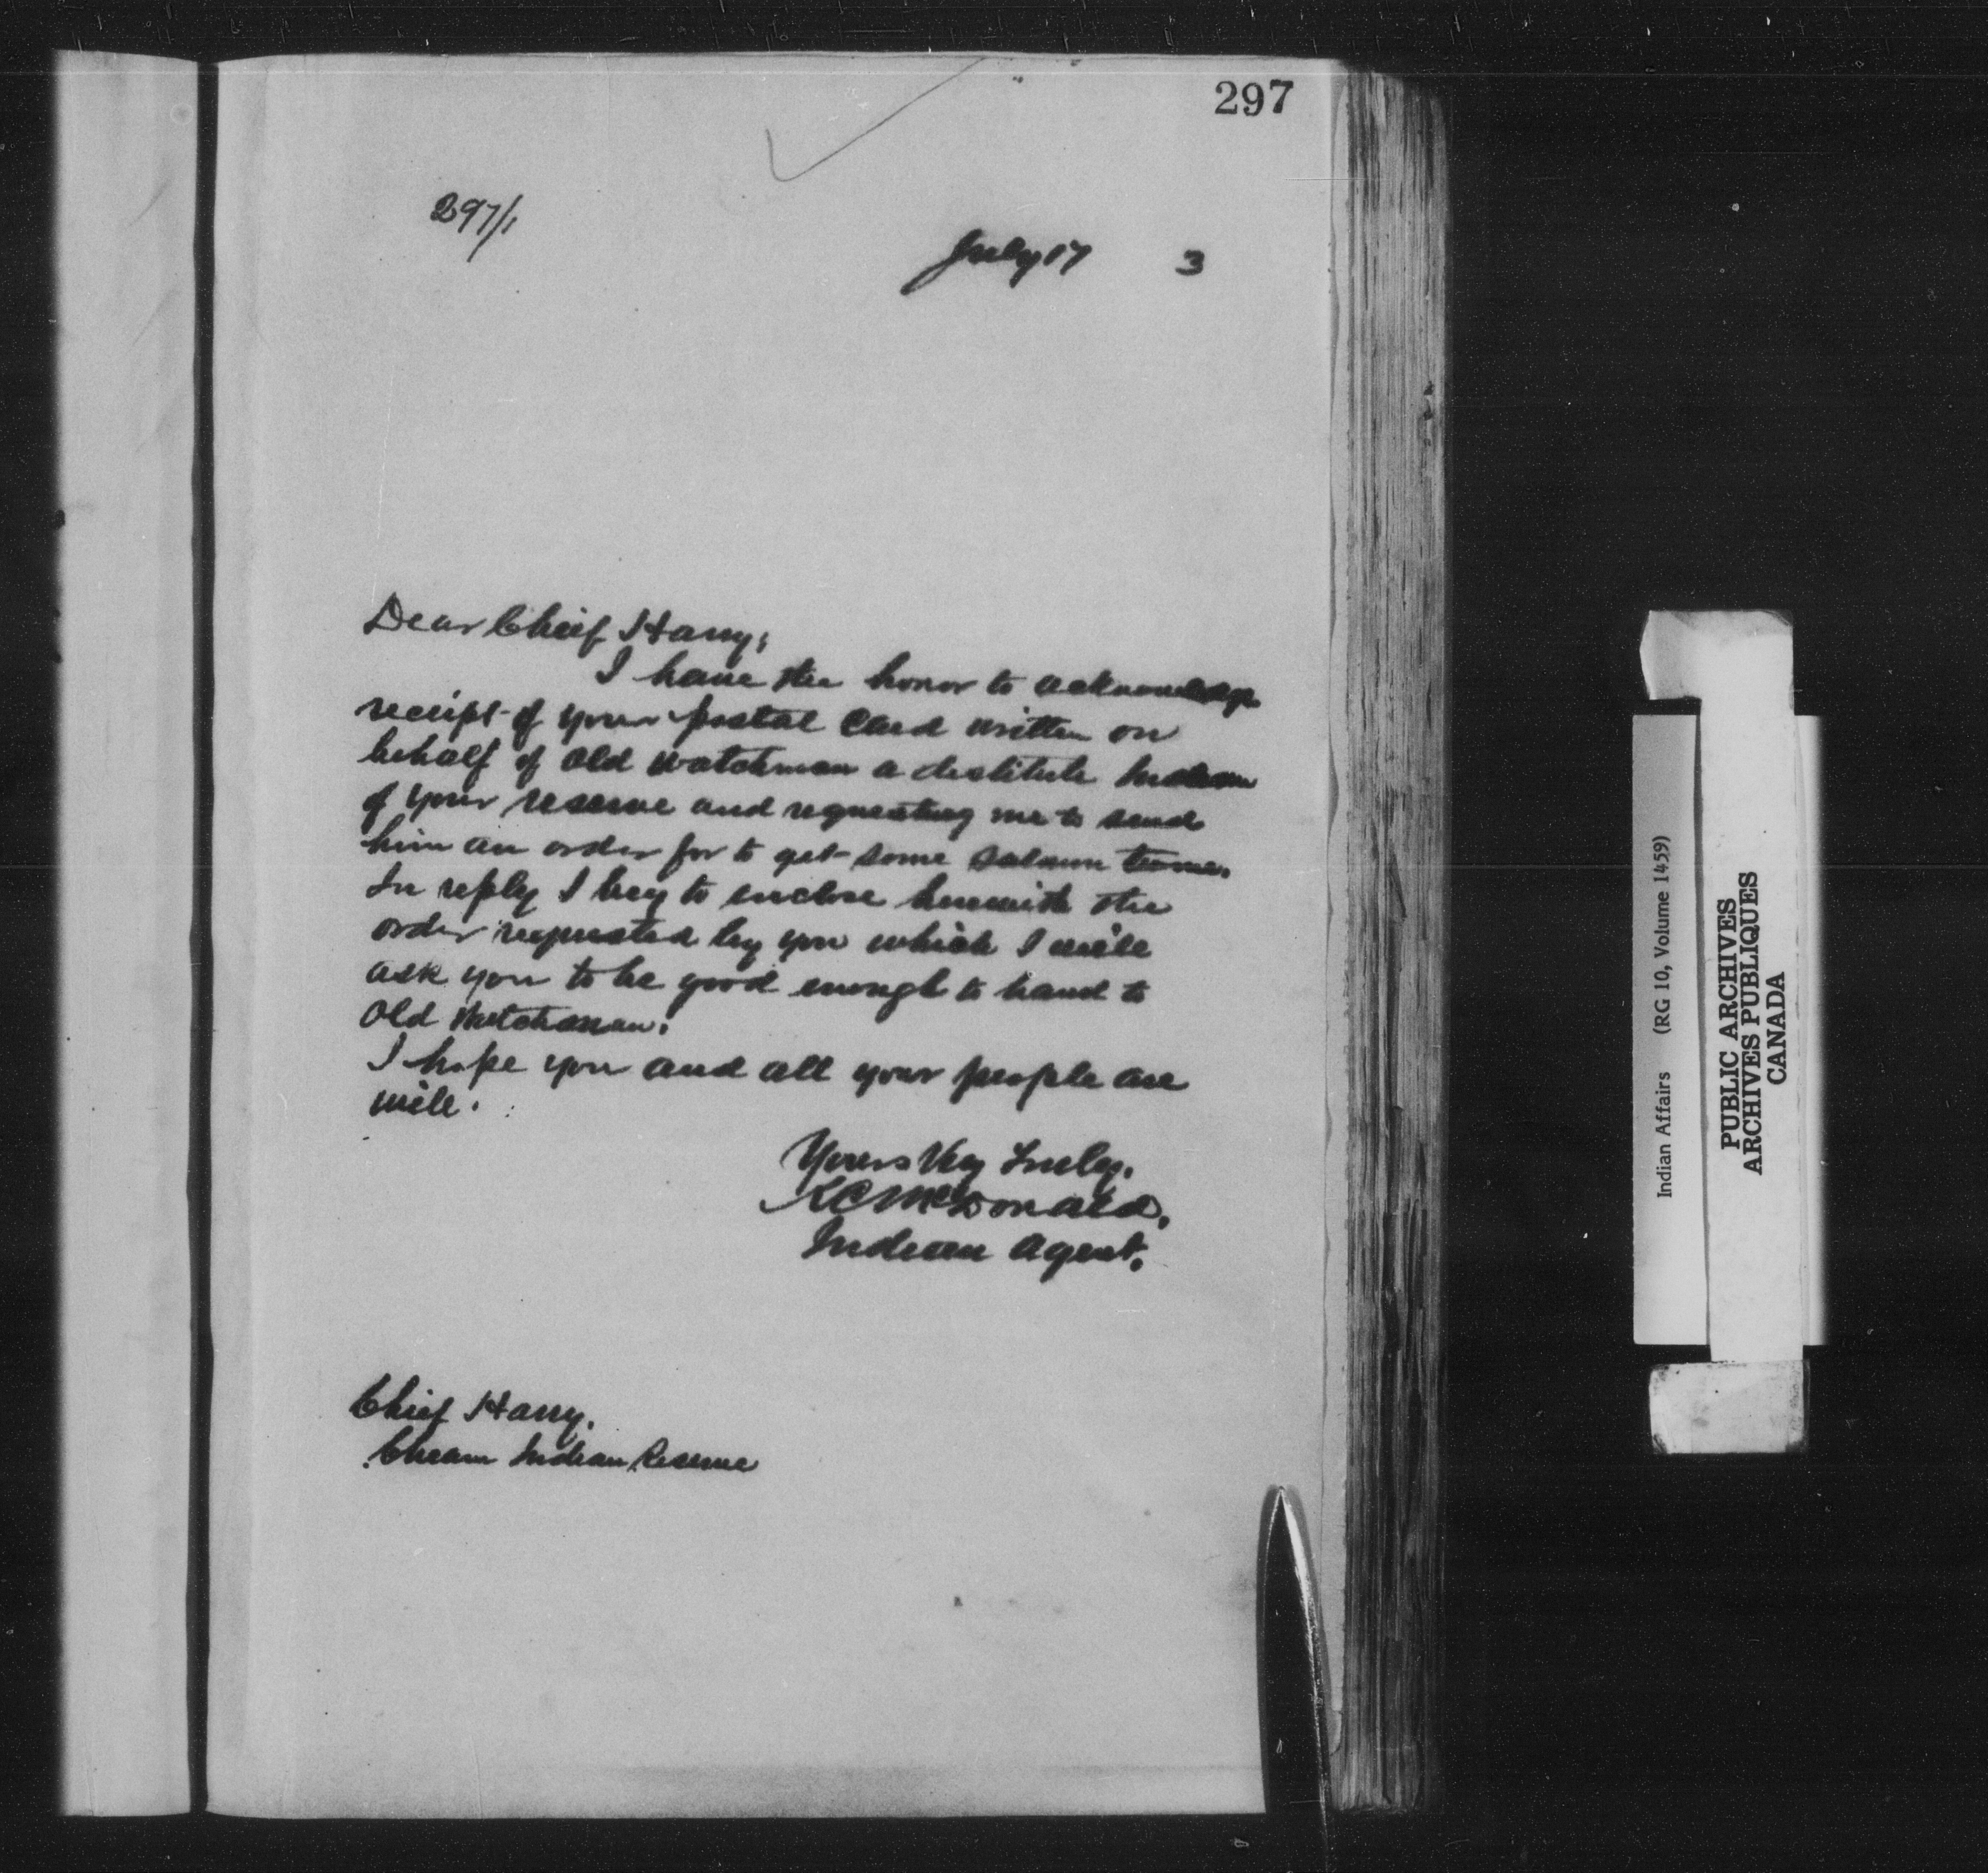 297
297/1
July 17 3
Dear Chief Harry,
I have the honor to acknowledge
receipt of your postal card written on
behalf of Old Watchman a destitute Indian
of your reserve and requesting me to send
him an order for to get some salmon twine.
In reply I beg to enclose herewith the
order requested by you which I will
ask you to be good enough to hand to
Old Watchman.
I hope you and all your people are
well.
Yours Very Truly.
McDonald,
Indian Agent.
Chief Harry.
Cheam Indian Reserve
Indian Affairs (RG 10, Volume 1459)
PUBLIC ARCHIVES
ARCHIVES PUBLIQUES
CANADA